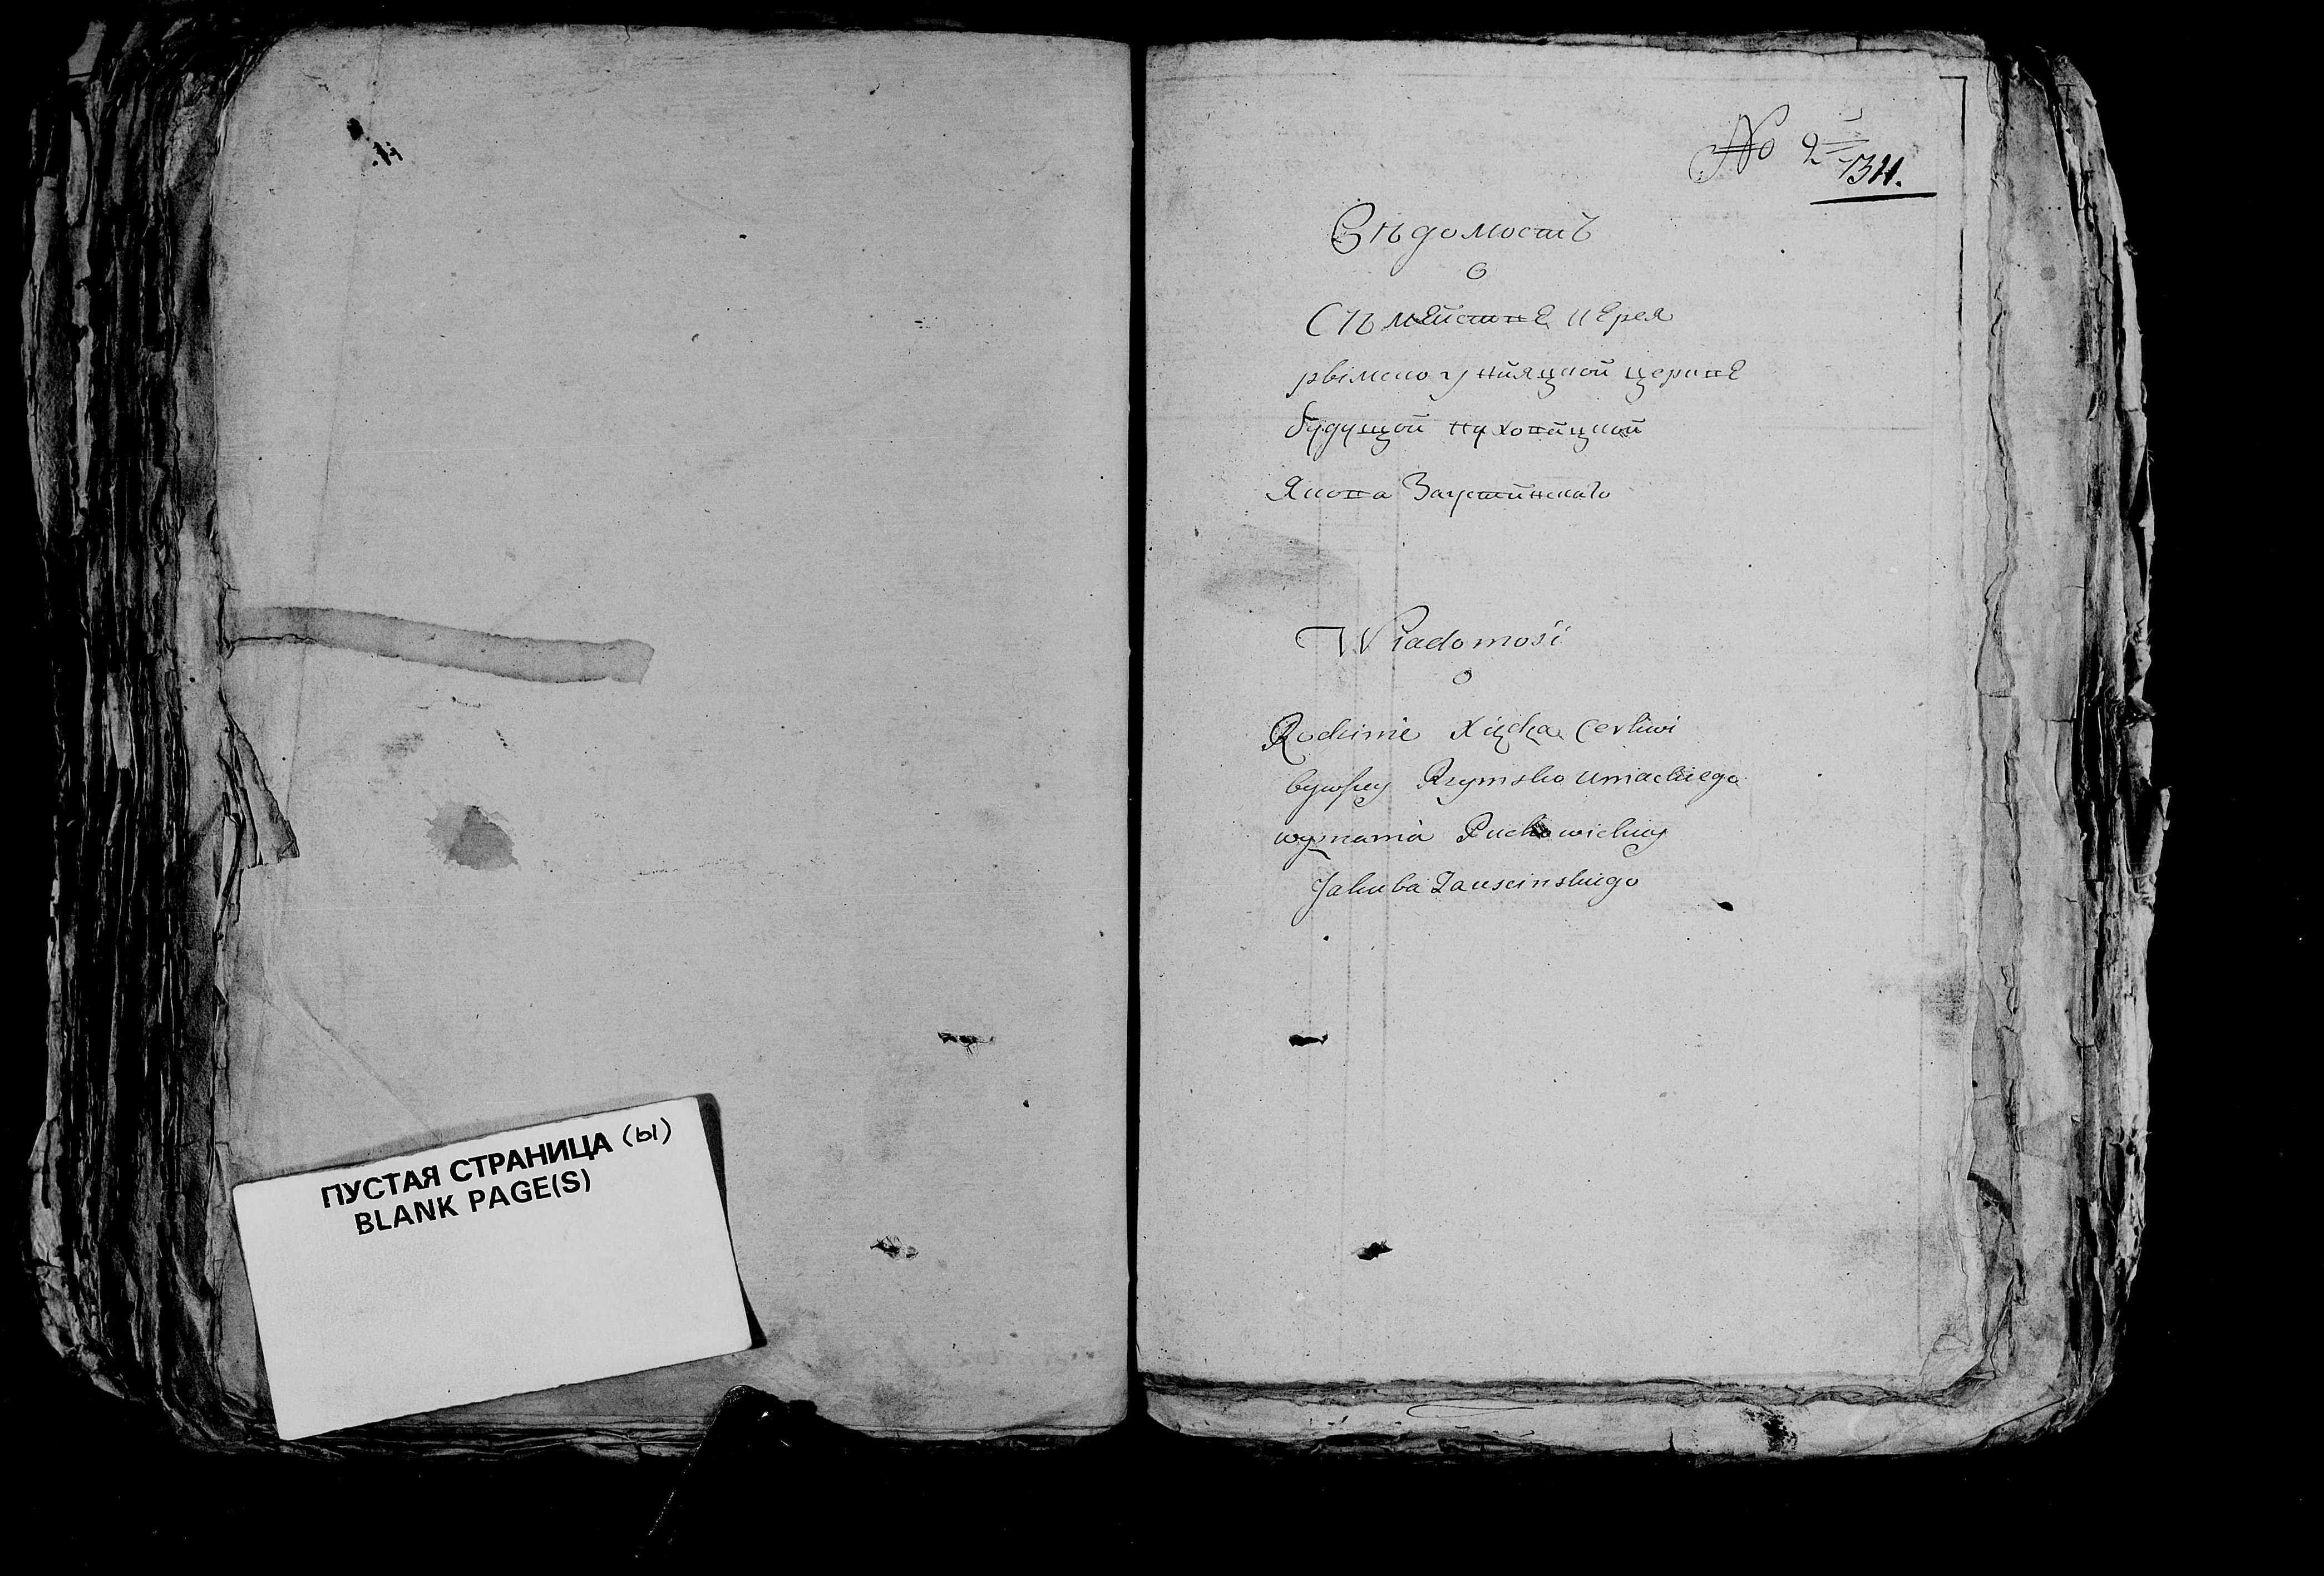 ПУСТАЯ СТРАНИЦА (ы)
BLANK PAGE(S)
No 2
1311.
Вѣдомость
о
Сѣмействе иерея
рымско униацкой церкве
будущой пуховицкой
Якова Заустинскаго
Wiadomość
o
Rodzinie Xiędza Cerkwi
bywszey Rzymsko Uniackiego
wyznania Puchowickiey
Jakuba Zauscinskiego